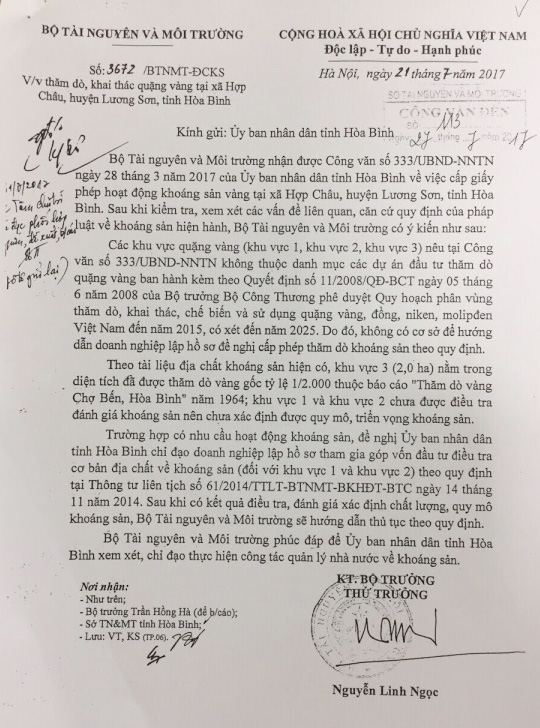 BỘ TÀI NGUYÊN VÀ MÔI TRƯỜNG
CỘNG HOÀ XÃ HỘI CHỦ NGHĨA VIỆT NAM
Độc lập - Tự do - Hạnh phúc
Số: 3672 /BTNMT-ĐCKS
Hà Nội, ngày 21 tháng 7 năm 2017
V/v thăm dò, khai thác quặng vàng tại xã Hợp
Châu, huyện Lương Sơn, tỉnh Hòa Bình
SỞ TÀI NGUYÊN VÀ MÔI TRƯỜNG
CÔNG VĂN ĐẾN
Số: 113
Ngày 27 tháng 7 năm 2017
Kính gửi: Ủy ban nhân dân tỉnh Hòa Bình
Bộ Tài nguyên và Môi trường nhận được Công văn số 333/UBND-NNTN
ngày 28 tháng 3 năm 2017 của Ủy ban nhân dân tỉnh Hòa Bình về việc cấp giấy
phép hoạt động khoáng sản vàng tại xã Hợp Châu, huyện Lương Sơn, tỉnh Hòa
Bình. Sau khi kiểm tra, xem xét các vấn đề liên quan, căn cứ quy định của pháp
luật về khoáng sản hiện hành, Bộ Tài nguyên và Môi trường có ý kiến như sau:
Các khu vực quặng vàng (khu vực 1, khu vực 2, khu vực 3) nêu tại Công
văn số 333/UBND-NNTN không thuộc danh mục các dự án đầu tư thăm dò
quặng vàng ban hành kèm theo Quyết định số 11/2008/QĐ-BCT ngày 05 tháng
6 năm 2008 của Bộ trưởng Bộ Công Thương phê duyệt Quy hoạch phân vùng
thăm dò, khai thác, chế biến và sử dụng quặng vàng, đồng, niken, molipđen
Việt Nam đến năm 2015, có xét đến năm 2025. Do đó, không có cơ sở để hướng
dẫn doanh nghiệp lập hồ sơ đề nghị cấp phép thăm dò khoáng sản theo quy định.
Theo tài liệu địa chất khoáng sản hiện có, khu vực 3 (2,0 ha) nằm trong
diện tích đã được thăm dò vàng gốc tỷ lệ 1/2.000 thuộc báo cáo "Thăm dò vàng
Chợ Bến, Hòa Bình" năm 1964; khu vực 1 và khu vực 2 chưa được điều tra
đánh giá khoáng sản nên chưa xác định được quy mô, triển vọng khoáng sản.
Trường hợp có nhu cầu hoạt động khoáng sản, đề nghị Ủy ban nhân dân
tỉnh Hòa Bình chỉ đạo doanh nghiệp lập hồ sơ tham gia góp vốn đầu tư điều tra
cơ bản địa chất về khoáng sản (đối với khu vực 1 và khu vực 2) theo quy định
tại Thông tư liên tịch số 61/2014/TTLT-BTNMT-BKHĐT-BTC ngày 14 tháng
11 năm 2014. Sau khi có kết quả điều tra, đánh giá xác định chất lượng, quy mô
khoáng sản, Bộ Tài nguyên và Môi trường sẽ hướng dẫn thủ tục theo quy định.
Bộ Tài nguyên và Môi trường phúc đáp để Ủy ban nhân dân tỉnh Hòa
Bình xem xét, chỉ đạo thực hiện công tác quản lý nhà nước về khoáng sản.
Nơi nhận:
- Như trên;
- Bộ trưởng Trần Hồng Hà (để b/cáo);
- Sở TN&MT tỉnh Hòa Bình;
- Lưu: VT, KS (TP.06).
KT. BỘ TRƯỞNG
THỨ TRƯỞNG
Nguyễn Linh Ngọc